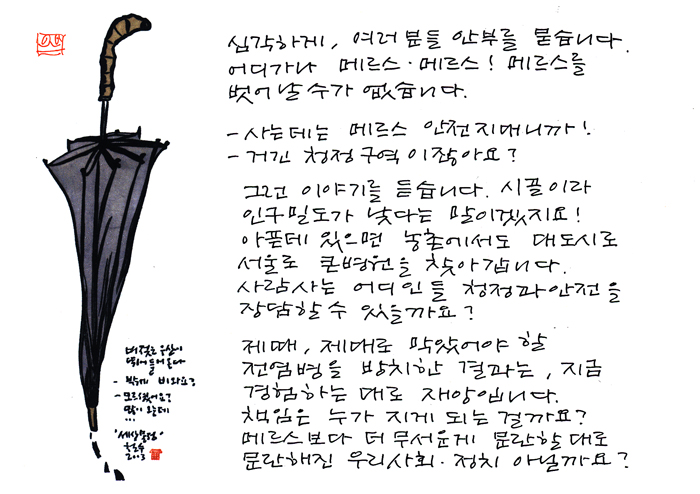 심각하게, 여러분들 안부를 묻습니다.
어디가나 메르스·메르스! 메르스를
벗어날 수가 없습니다.
- 사는데는 메르스 안전지대니까!
- 거긴 청정구역이잖아요?
그런 이야기를 듣습니다. 시골이라
인구밀도가 낮다는 말이겠지요!
아픈데 있으면 농촌에서도 대도시로
서울로 큰병원을 찾아갑니다.
사람사는 어디인들 청정과 안전을
장담할 수 있을까요?
제때, 제대로 막았어야 할
전염병을 방치한 결과는, 지금
경험하는 대로 재앙입니다.
책임은 누가 지게 되는 걸까요?
메르스보다 더 무서운게 문란할대로
문란해진 우리사회·정치 아닐까요?
비젖은 우산이
뛰어 들어 온다
- 밖에 비와요?
- 모르셨어요?
많이 오는데
...
'세상물정'
철수
2003